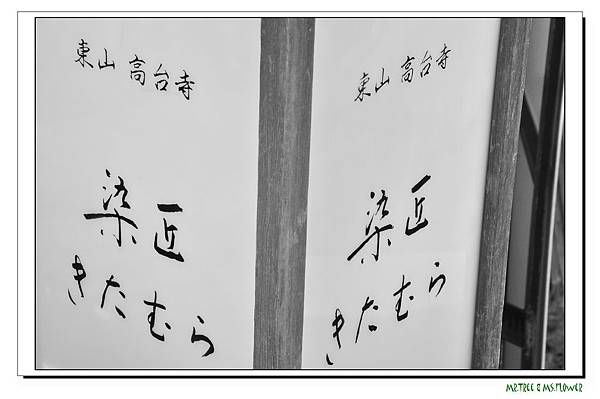 東山 高台寺
染匠
きたむら
東山 高台寺
染匠
きたむら
MR.TREE & MS.FLOWER